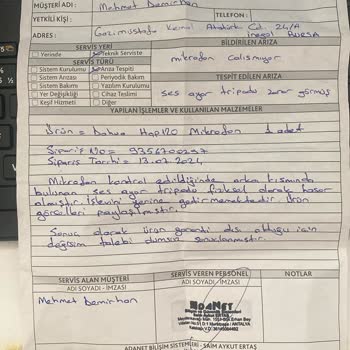 MÜŞTERİ ADI : Mehmet Demirhan
YETKİLİ KİŞİ : TELEFON :
ADRES : Gazimustafa Kemal Atatürk Cd. 24/A
inegol BURSA
SERVİS YERİ BİLDİRİLEN ARIZA
Yerinde Teknik Serviste mikrofon calışmıyor
SERVİS TÜRÜ
Sistem Kurulumu Arıza Tespiti
Sistem Arızası Periyodik Bakım TESPİT EDİLEN ARIZA
Sistem Bakımı Yazılım Kurulumu ses ayar tripodu zarar görmüş
Yer Değişikliği Cihaz Teslimi
Keşif Hizmeti Diğer
YAPILAN İŞLEMLER VE KULLANILAN MALZEMELER
Ürün = Dahua Hap120 Mikrofon 1 adet
Sipariş No = 9356700297
Sipariş Tarihi = 13.07.2024
Mikrofon kontrol edildiğinde arka kısmında
bulunan ses ayar tripodu fiziksel olarak hasar
almıştır. İşlevini yerine getirmemektedir. Ürün
görselleri paylaşılmıştır.
Sonuç olarak ürün garanti dışı olduğu için
değişim talebi olumsuz sonuclanmıştır.
SERVİS ALAN MÜŞTERİ SERVİS VEREN PERSONEL NOTLAR
ADI SOYADI - İMZASI ADI SOYADI - İMZASI
Mehmet Demirhan
ADANET
Bilişim ve Güvenlik Sistemleri
Saim Aykut ERTAŞ
ANTALYA
ADANET BİLİŞİM SİSTEMLERİ - SAİM AYKUT ERTAŞ